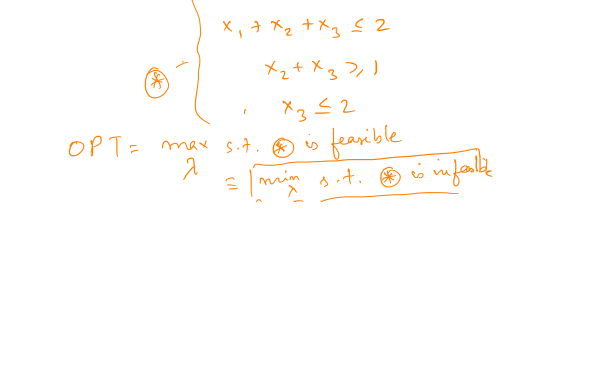 x₁ + x₂ + x₃ ≤ 2
x₂ + x₃ ≥ 1
⊛
x₃ ≤ 2
OPT = max s.t. ⊛ is feasible
λ
≡ min s.t. ⊛ is infeasible
λ